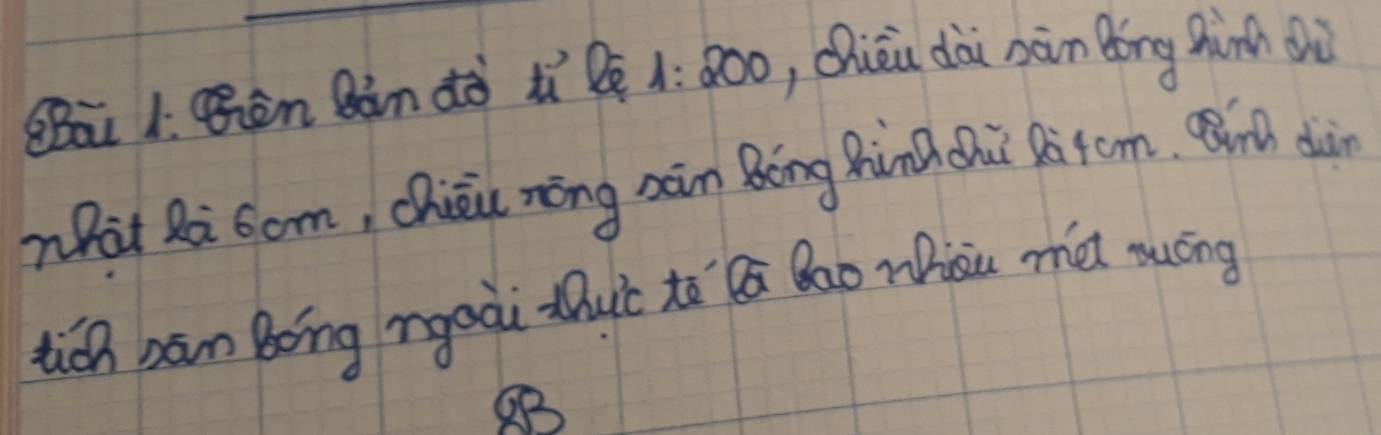 Bài 1: Trên bản đồ tỉ lệ 1:200, chiều dài sân bóng hình chữ
nhật là 6cm, chiều rộng sân bóng hình chữ là 4cm. Tính diện
tích sân bóng ngoài thực tế là bao nhiêu mét vuông